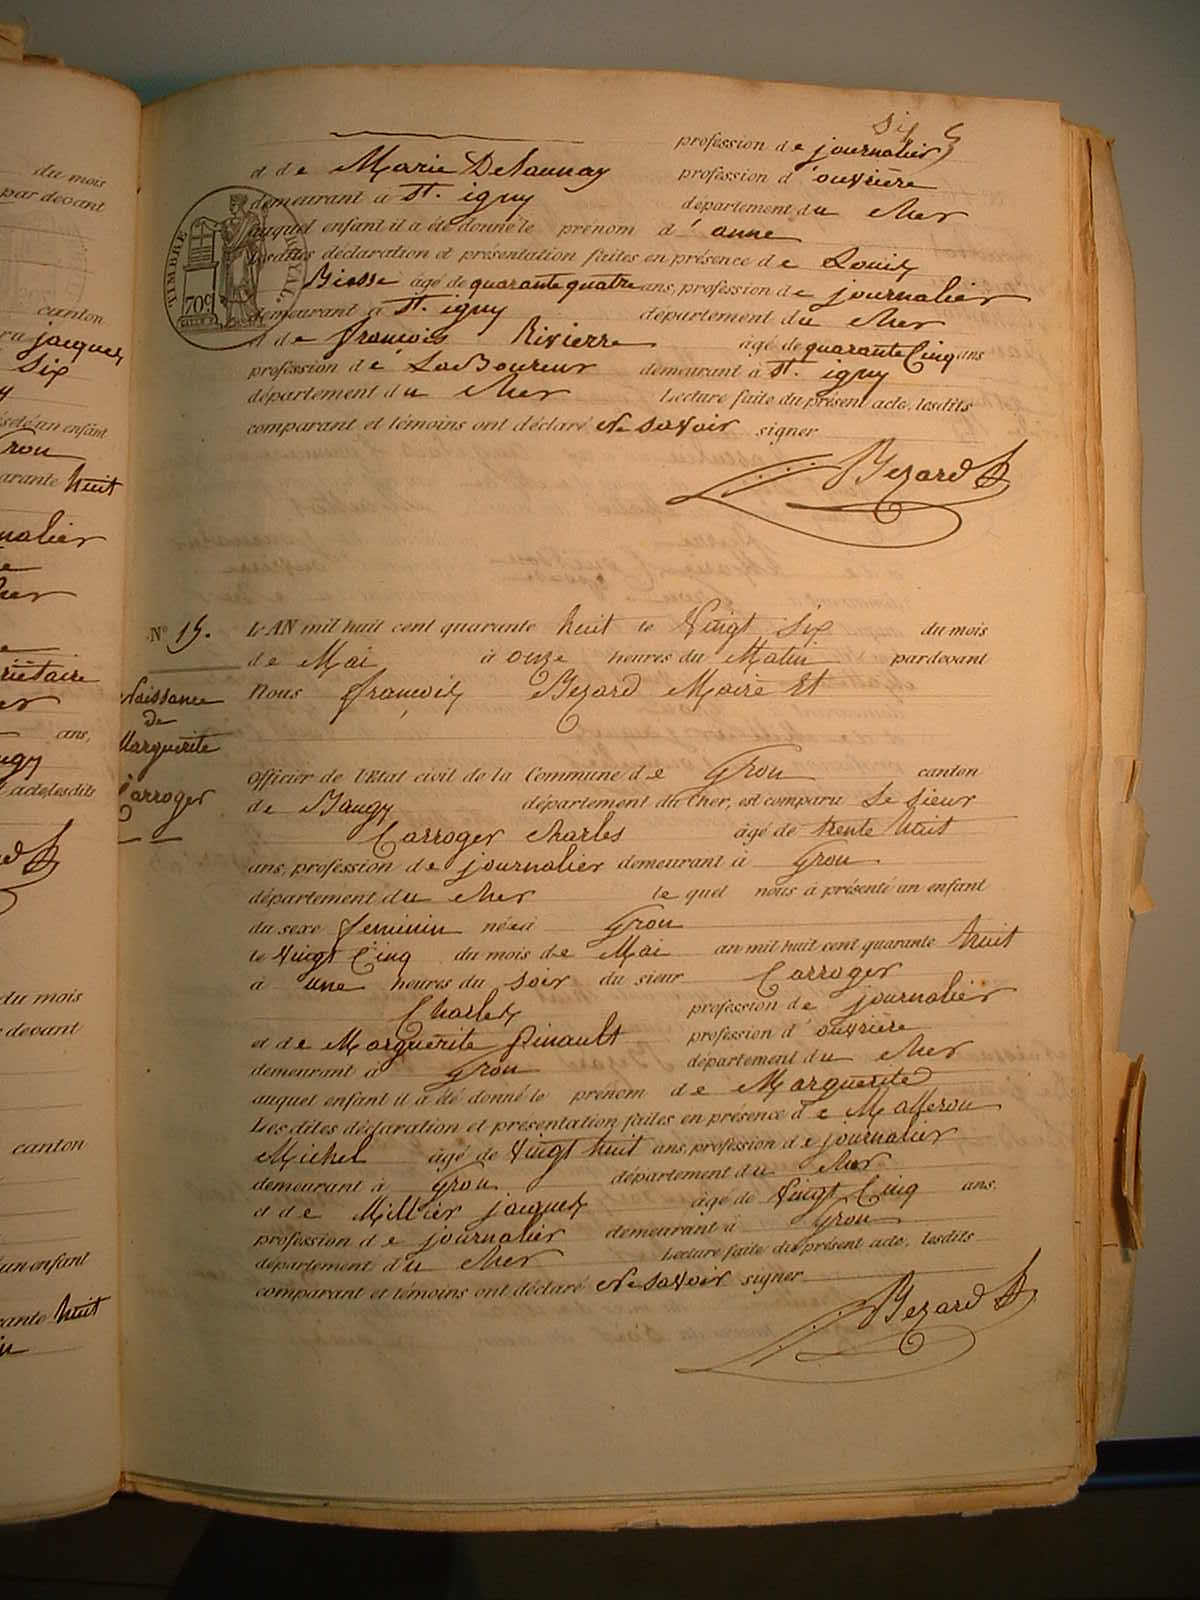 du mois
par devant
canton
jacques
six
un enfant
Grou
arante huit
nalier
her
riétaire
er
ans,
ugy
acte, lesdits
du mois
devant
canton
un enfant
rante huit
six
profession de journalier
et de Marie Delaunay profession d'ouvrière
demeurant à St. igny département du cher
auquel enfant il a été donné le prénom d'anne
lesdites déclaration et présentation faites en présence de Louis
Biosse âgé de quarante quatre ans, profession de journalier
demeurant à St. igny département du cher
et de françois Rivierre âgé de quarante Cinq ans
profession de LaBoureur demeurant à St. igny
département du cher Lecture faite du présent acte, lesdits
comparant et témoins ont déclaré Ne savoir signer
Bezard
TIMBRE ROYAL
70c
No 15.
Naissance
de
Marguerite
Carroger
L'AN mil huit cent quarante huit le Vingt Six du mois
de Mai à onze heures du Matin pardevant
Nous françois Bezard Maire Et
Officier de l'Etat civil de la Commune de Grou canton
de Baugy département du Cher, est comparu Le sieur
Carroger charles âgé de trente huit
ans, profession de journalier demeurant à Grou
département du cher le quel nous a présenté un enfant
du sexe feminin née à Grou
le Vingt Cinq du mois de Mai an mil huit cent quarante huit
à une heures du soir du sieur Carroger
Charles profession de journalier
et de Marguerite Pinault profession d'ouvrière
demeurant à Grou département du cher
auquel enfant il a été donné le prénom de Marguerite
Les dites déclaration et présentation faites en présence de Malleron
Michel âgé de Vingt huit ans, profession de journalier
demeurant à Grou département du cher
et de Millier jacques âgé de Vingt Cinq ans,
profession de journalier demeurant à Grou
département du cher Lecture faite du présent acte, lesdits
comparant et témoins ont déclaré Ne savoir signer
Bezard